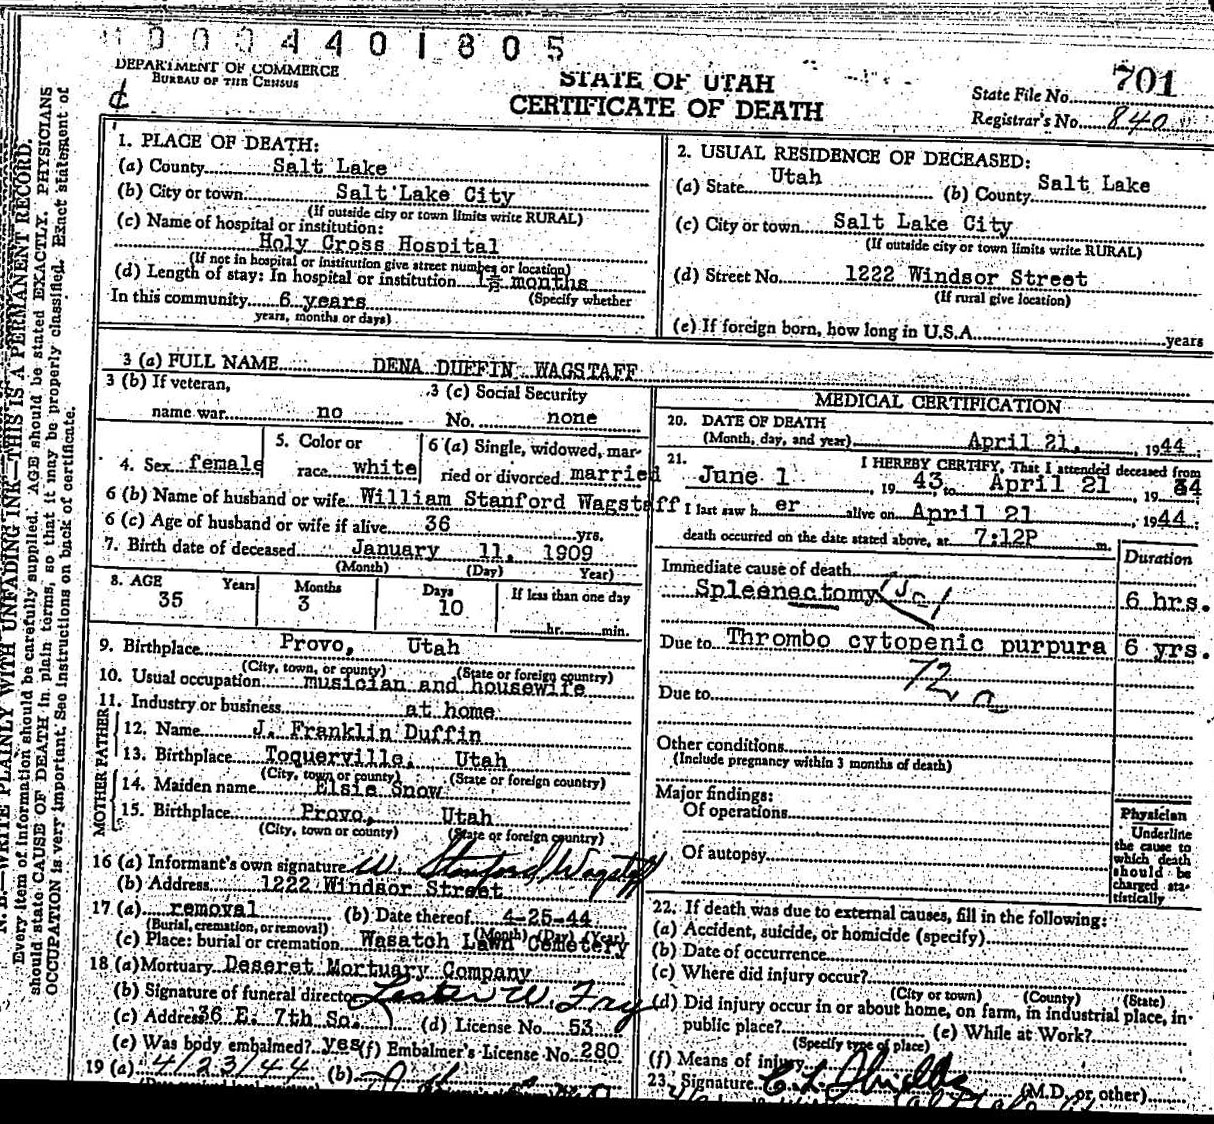 0004401805
DEPARTMENT OF COMMERCE
BUREAU OF THE CENSUS
¢
STATE OF UTAH
CERTIFICATE OF DEATH
State File No. 701
Registrar's No. 840
1. PLACE OF DEATH:
(a) County Salt Lake
(b) City or town Salt Lake City
(If outside city or town limits write RURAL)
(c) Name of hospital or institution:
Holy Cross Hospital
(If not in hospital or institution give street number or location)
(d) Length of stay: In hospital or institution 1½ months
In this community 6 years (Specify whether
years, months or days)
2. USUAL RESIDENCE OF DECEASED:
(a) State Utah (b) County Salt Lake
(c) City or town Salt Lake City
(If outside city or town limits write RURAL)
(d) Street No. 1222 Windsor Street
(If rural give location)
(e) If foreign born, how long in U.S.A. years
3 (a) FULL NAME DENA DUFFIN WAGSTAFF
3 (b) If veteran,
name war no
3 (c) Social Security
No. none
4. Sex female
5. Color or
race white
6 (a) Single, widowed, mar-
ried or divorced married
6 (b) Name of husband or wife William Stanford Wagstaff
6 (c) Age of husband or wife if alive 36 yrs.
7. Birth date of deceased January 11, 1909
(Month) (Day) Year)
8. AGE Years Months Days If less than one day
35 3 10 hr. min.
9. Birthplace Provo, Utah
(City, town, or county) (State or foreign country)
10. Usual occupation musician and housewife
11. Industry or business at home
FATHER
12. Name J. Franklin Duffin
13. Birthplace Toquerville, Utah
(City, town or county) (State or foreign country)
MOTHER
14. Maiden name Elsie Snow
15. Birthplace Provo, Utah
(City, town or county) (State or foreign country)
16 (a) Informant's own signature W. Stanford Wagstaff
(b) Address 1222 Windsor Street
17 (a) removal (b) Date thereof 4-25-44
(Burial, cremation, or removal) (Month) (Day) (Year)
(c) Place: burial or cremation Wasatch Lawn Cemetery
18 (a) Mortuary Deseret Mortuary Company
(b) Signature of funeral director Lester W. Fry
(c) Address 36 E. 7th So. (d) License No. 53
(e) Was body embalmed? yes (f) Embalmer's License No. 280
19 (a) 4/23/44 (b)
MEDICAL CERTIFICATION
20. DATE OF DEATH
(Month, day, and year) April 21, 1944
21. I HEREBY CERTIFY, That I attended deceased from
June 1, 1943, to April 21, 1944
I last saw her alive on April 21, 1944
death occurred on the date stated above, at 7:12P m.
Duration
Immediate cause of death
Spleenectomy 6 hrs.
Due to Thrombo cytopenic purpura 6 yrs.
72a
Due to
Other conditions
(Include pregnancy within 3 months of death)
Major findings:
Of operations
Of autopsy
Physician
Underline
the cause to
which death
should be
charged sta-
tistically
22. If death was due to external causes, fill in the following:
(a) Accident, suicide, or homicide (specify)
(b) Date of occurrence
(c) Where did injury occur?
(City or town) (County) (State)
(d) Did injury occur in or about home, on farm, in industrial place, in
public place? (e) While at Work?
(Specify type of place)
(f) Means of injury
23. Signature C L Shields (M.D. or other)
N. B.—WRITE PLAINLY WITH UNFADING INK—THIS IS A PERMANENT RECORD.
Every item of information should be carefully supplied. AGE should be stated EXACTLY. PHYSICIANS
should state CAUSE OF DEATH in plain terms, so that it may be properly classified. Exact statement of
OCCUPATION is very important. See instructions on back of certificate.